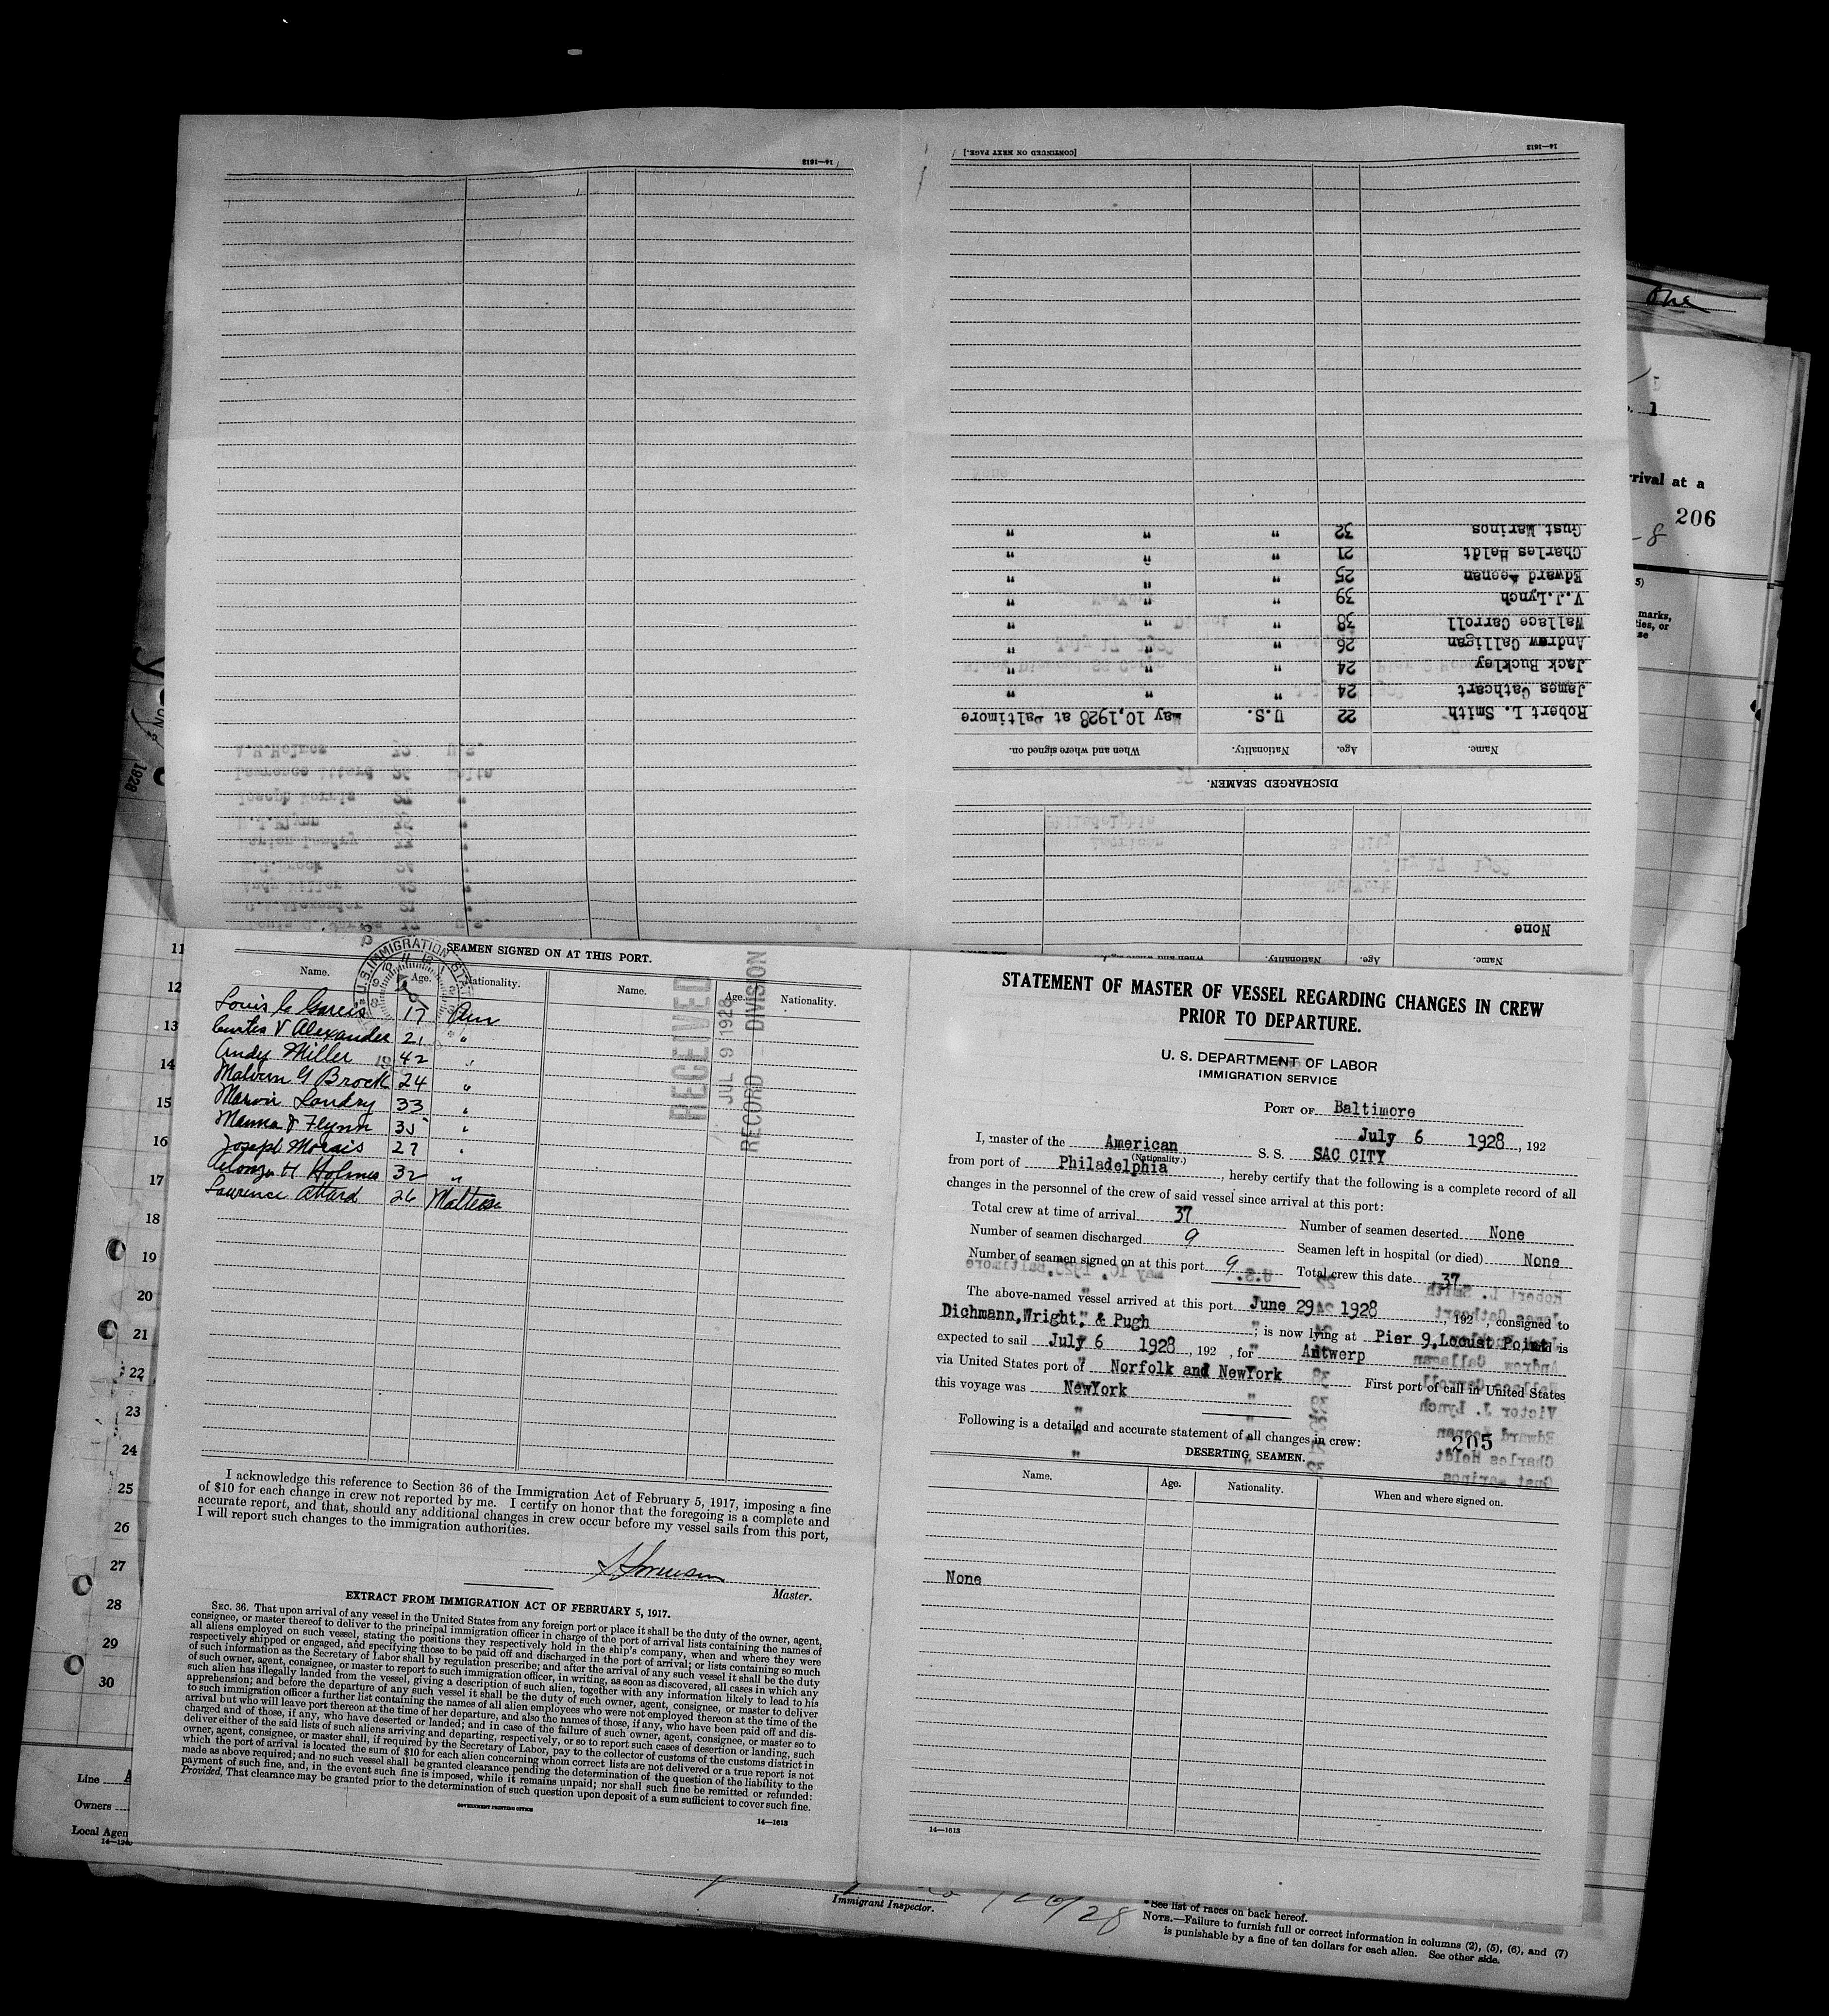 SEAMEN SIGNED ON AT THIS PORT.
Name. Age. Nationality. Name. Age. Nationality.
Louis C Garcis 17 Am
Curtis V Alexander 21 "
Andy Miller 42 "
Malvern G Brock 24 "
Marvin Landry 33 "
Flynn 35 "
Joseph Morais 27 "
Alonzo H Holmes 32 "
Laurence Attard 26 Maltese
U.S. IMMIGRATION
RECEIVED
JUL 9 1928
RECORD DIVISION
I acknowledge this reference to Section 36 of the Immigration Act of February 5, 1917, imposing a fine
of $10 for each change in crew not reported by me. I certify on honor that the foregoing is a complete and
accurate report, and that, should any additional changes in crew occur before my vessel sails from this port,
I will report such changes to the immigration authorities.
Master.
EXTRACT FROM IMMIGRATION ACT OF FEBRUARY 5, 1917.
SEC. 36. That upon arrival of any vessel in the United States from any foreign port or place it shall be the duty of the owner, agent,
consignee, or master thereof to deliver to the principal immigration officer in charge of the port of arrival lists containing the names of
all aliens employed on such vessel, stating the positions they respectively hold in the ship's company, when and where they were
respectively shipped or engaged, and specifying those to be paid off and discharged in the port of arrival; or lists containing so much
of such information as the Secretary of Labor shall by regulation prescribe; and after the arrival of any such vessel it shall be the duty
of such owner, agent, consignee, or master to report to such immigration officer, in writing, as soon as discovered, all cases in which any
such alien has illegally landed from the vessel, giving a description of such alien, together with any information likely to lead to his
apprehension; and before the departure of any such vessel it shall be the duty of such owner, agent, consignee, or master to deliver
to such immigration officer a further list containing the names of all alien employees who were not employed thereon at the time of the
arrival but who will leave port thereon at the time of her departure, and also the names of those, if any, who have been paid off and dis-
charged and of those, if any, who have deserted or landed; and in case of the failure of such owner, agent, consignee, or master so to
deliver either of the said lists of such aliens arriving and departing, respectively, or so to report such cases of desertion or landing, such
owner, agent, consignee, or master shall, if required by the Secretary of Labor, pay to the collector of customs of the customs district in
which the port of arrival is located the sum of $10 for each alien concerning whom correct lists are not delivered or a true report is not
made as above required; and no such vessel shall be granted clearance pending the determination of the question of the liability to the
payment of such fine, and, in the event such fine is imposed, while it remains unpaid; nor shall such fine be remitted or refunded:
Provided, That clearance may be granted prior to the determination of such question upon deposit of a sum sufficient to cover such fine.
GOVERNMENT PRINTING OFFICE
14—1613
STATEMENT OF MASTER OF VESSEL REGARDING CHANGES IN CREW
PRIOR TO DEPARTURE.
U. S. DEPARTMENT OF LABOR
IMMIGRATION SERVICE
PORT OF Baltimore
July 6 1928, 192
I, master of the American S. S. SAC CITY
(Nationality.)
from port of Philadelphia, hereby certify that the following is a complete record of all
changes in the personnel of the crew of said vessel since arrival at this port:
Total crew at time of arrival 37 Number of seamen deserted None
Number of seamen discharged 9 Seamen left in hospital (or died) None
Number of seamen signed on at this port 9 Total crew this date 37
The above-named vessel arrived at this port June 29 1928, 192 , consigned to
Dichmann,Wright, & Pugh ; is now lying at Pier 9,Locust Point and is
expected to sail July 6 1928, 192 , for Antwerp
via United States port of Norfolk and NewYork First port of call in United States
this voyage was NewYork
Following is a detailed and accurate statement of all changes in crew:
205
DESERTING SEAMEN.
Name. Age. Nationality. When and where signed on.
None
14—1613
Name. Age. Nationality. When and where signed on.
None
DISCHARGED SEAMEN.
Name. Age. Nationality. When and where signed on.
Robert L. Smith 22 U.S. May 10,1928 at Baltimore
James Cathcart 24 " " "
Jack Buckley 24 " " "
Andrew Calligan 26 " " "
Wallace Carroll 38 " " "
V.J.Lynch 39 " " "
Edward Keenan 25 " " "
Charles Heldt 21 " " "
Gust Marinos 32 " " "
[CONTINUED ON NEXT PAGE.]
14—1613
14—1613
One
1
rrival at a
206
-8
5)
marks,
ties, or
se
1928
11
12
13
14
15
16
17
18
19
20
21
22
23
24
25
26
27
28
29
30
Line
Owners
Local Agen
Immigrant Inspector.
* See list of races on back hereof.
NOTE.—Failure to furnish full or correct information in columns (2), (5), (6), and (7)
is punishable by a fine of ten dollars for each alien. See other side.